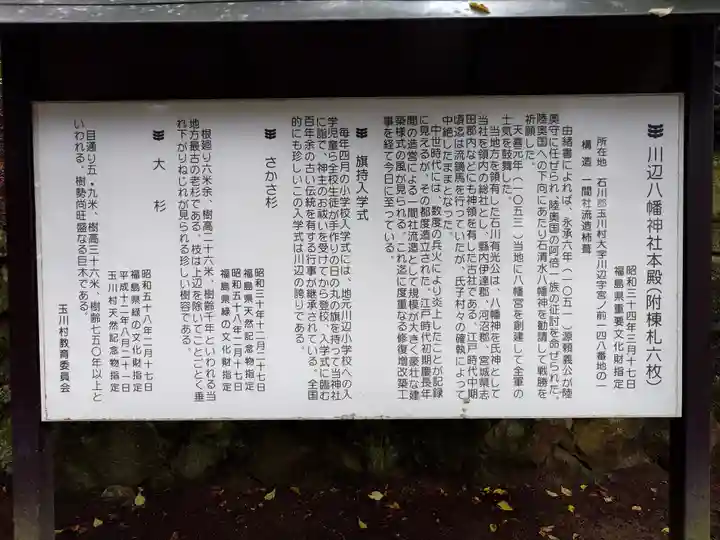 川辺八幡神社本殿(附棟札六枚)
昭和三十四年三月十七日
福島県重要文化財指定
所在地 石川郡玉川村大字川辺字宮ノ前一四八番地の一
構造 一間社流造杮葺
由緒書によれば、永承六年(一〇五一)源頼義公が陸
奥守に任ぜられ陸奥国の阿倍一族の征討を命ぜられた。
陸奥国への下向にあたり石清水八幡神を勧請して戦勝を
祈願した。
天喜元年(一〇五三)当地に八幡宮を創建して全軍の
士気を鼓舞した。
当地方を領有した石川有光公は、八幡神を氏神として
当社を領内の総社とし、縣内伊達郡、河沼郡、宮城県志
田郡内などにも神領を有した古社である。江戸時代中期
頃迄は流鏑馬を行っていたが、氏子村々の確執によって
中絶したままとなった。
中世時代には、数度の兵火により炎上したことが記録
に見えるが、その都度造立された。江戸時代初期慶長年
間の造営による一間社流造として規模が大きく豪壮な建
築様式の風が見られる。これ迄に度重なる修復増改築工
事を経て今日に至っている。
旗持入学式
毎年四月の小学校入学式には、地元川辺小学校への入
学児童ら全校生徒が手作りの日の丸の旗を持って当神社
に詣で、神主のお祓いを受けてから登校、入学式に臨む
百年余の古い伝統を有する行事が継承されている。全国
的にも珍しいこの入学式は川辺の誇りである。
さかさ杉
昭和三十年十二月二十七日
福島県天然記念物指定
昭和五十八年二月十七日
福島県緑の文化財指定
根廻り六米余、樹高三十六米、樹齢千年といわれる当
地方最古の老杉である。枝は上辺を除いてことごとく垂
れ下がりねじれが見られる珍しい樹容である。
大杉
昭和五十八年二月十七日
福島県緑の文化財指定
平成十二年八月二十一日
玉川村天然記念物指定
目通り五・九米、樹高三十六米、樹齢七五〇年以上と
いわれる。樹勢尚旺盛なる巨木である。
玉川村教育委員会